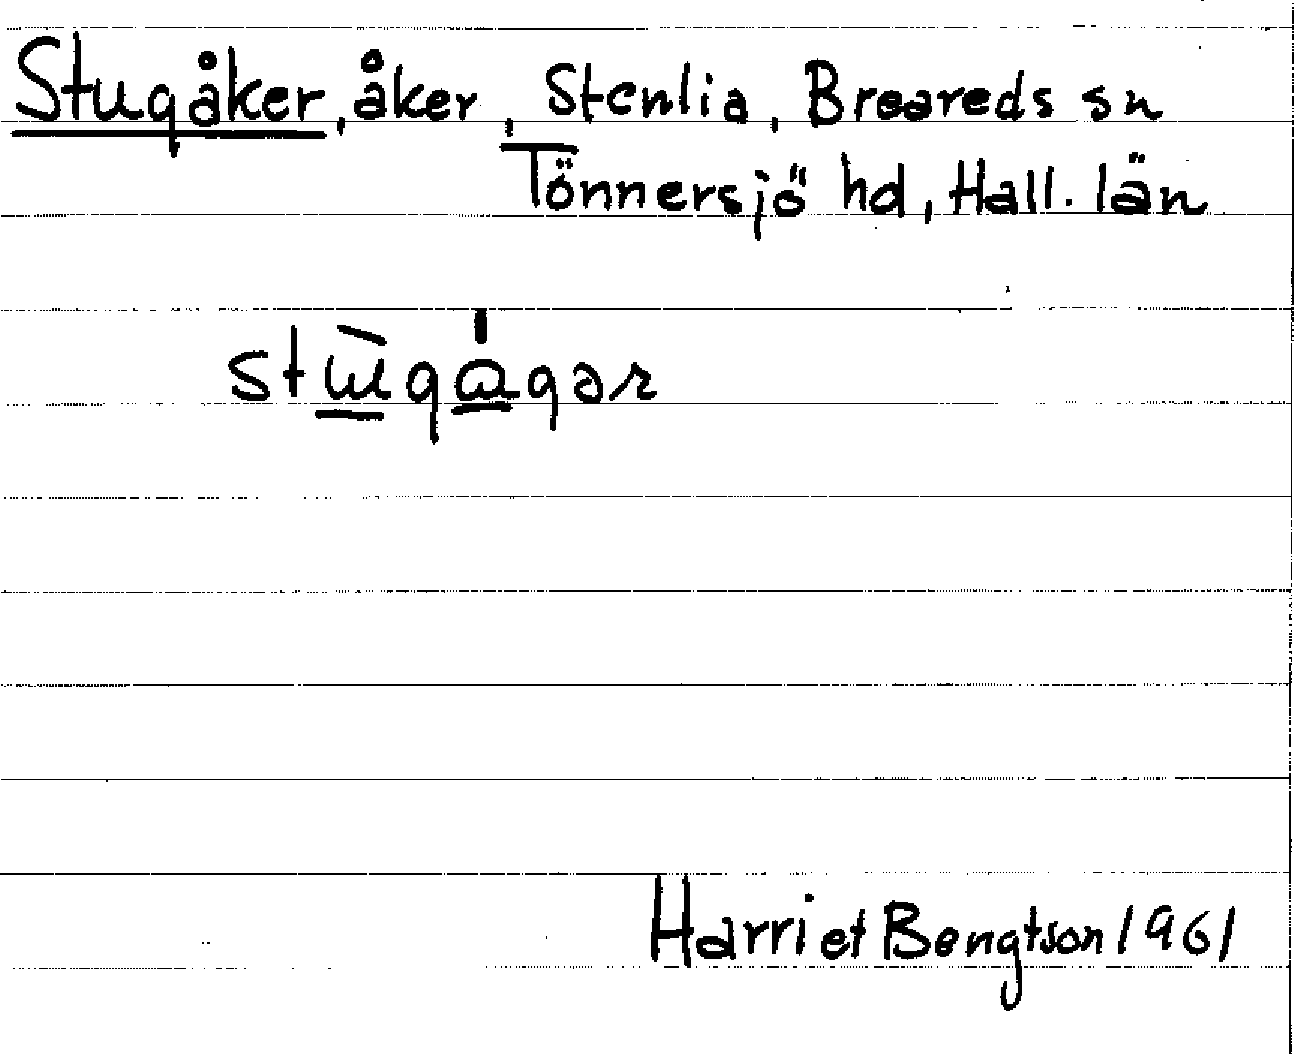 Stugåker, åker, Stenlia, Breareds sn
Tönnersjö hd, Hall. län
Harriet Bengtson 1961